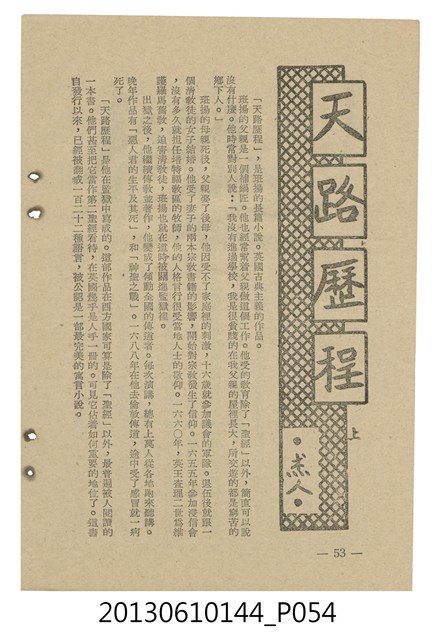 天路歷程
上
•杰人•
「天路歷程」，是班揚的長篇小說。英國古典主義的作品。
班揚的父親是一個補鍋匠。他也經常幫着父親做這個工作。他受的教育除了「聖經」以外，簡直可以說
沒有什麼。他時常對別人說：「我沒有進過學校，我是很貧賤的在我父親的屋裡長大，所交遊的都是窮苦的
鄉下人。」
班揚的母親死後，父親娶了後母，他因受不了家庭裡的刺激，十六歲就參加議會的軍隊。退伍後就跟一
個清教徒的女子結婚。他受了妻子的兩本宗教書籍的影響，開始對宗教發生了信仰。一六五五年參加浸信會
，沒有多久就担任培特福教區的牧師，他的人格言行很受當地人士的敬仰。一六六〇年，英王查理二世爲維
護羅馬舊教，迫害清教徒，班揚也就在這時被關進監獄裡。
出獄之後，他繼續傳敎並著作，他變成了傾動全國的傳道者。每次演講，總有上萬人從各地跑來聽講。
晚年作品有「惡人君的生平及其死」，和「神聖之戰」。一六八八年在他去倫敦傳道，途中受了感冒就一病
死了。
「天路歷程」是他在監獄中寫成的。這部作品在西方國家可算是除了「聖經」以外，最普遍被人閱讀的
一本書。他們甚至把它當作第二聖經看待，在英國幾乎是人手一冊的。可見它佔着如何重要的地位了。這書
自發行以來，已經被翻成一百二十二種語言，被公認是一部最完美的寓言小說。
— 53 —
20130610144_P054